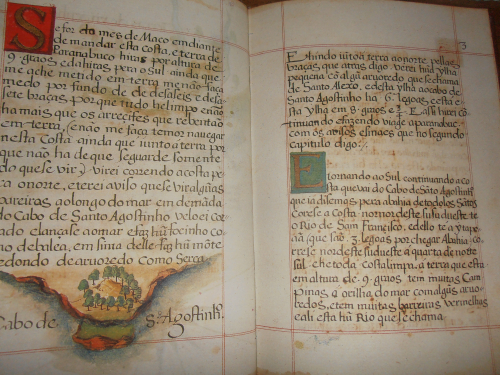 Se for do mes de Março em diante
de mandar esta costa, e terra de
Paranabuco hiras por altura de
9. graos e dahiras pera o Sul ainda que
me ache metido em terra menão faça
medo por fundo de dezaseis e deza
sete braças porque tudo he limpo e não
ha mais que os arrecifes que rebentão
em terra, se não me faça temor navegar
nesta Costa ainda que iunto a terra por
que não ha de que se guarde somente
do que se vir) virei correndo a costa pe
ra o norte, e terei aviso que se vir alguãs
barreiras ao longo do mar em demãda
do Cabo de Santo Agostinho veloei cor
tado e lançase ao mar e faz hũ focinho co
mo de balea, em sima delle faz hũ mõte
redondo de arvoredo como Serra.
Cabo de Sto. Agostinho.
3
E hindo iũto a terra ao norte pellas
braças, que atras digo verei hũa ylha
pequena cõ algũ arvoredo que se chama
de Santo Aleixo, e desta ylha ao cabo de
Santo Agostinho ha 6. legoas, e esta e
sta ylha em 8. graos e 3/4. E assi hirei cõ
tinuando e fazendo viage a paranabuco
com os avisos e sinaes que no segundo
capitulo digo.
E tornando ao Sul continuando a co
sta que vai do Cabo de Sãto Agostinho
que iá dissemos pera abahia de todolos Sãtos
Corese a Costa nornordeste susudueste, te
o Rio de San Francisco, e delle te a ytapo
ãa (que são 3. legoas por chegar Abahia) co
rrese nordeste sudueste e quarta de norte
sul che toda costa limpa, a terra que esta
em altura de 9. graos tem muitas Cam
pinas, e orilha do mar com algũs arvo
redos, e tem muitas barreiras vermelhas
e ali esta hũ Rio que se chama